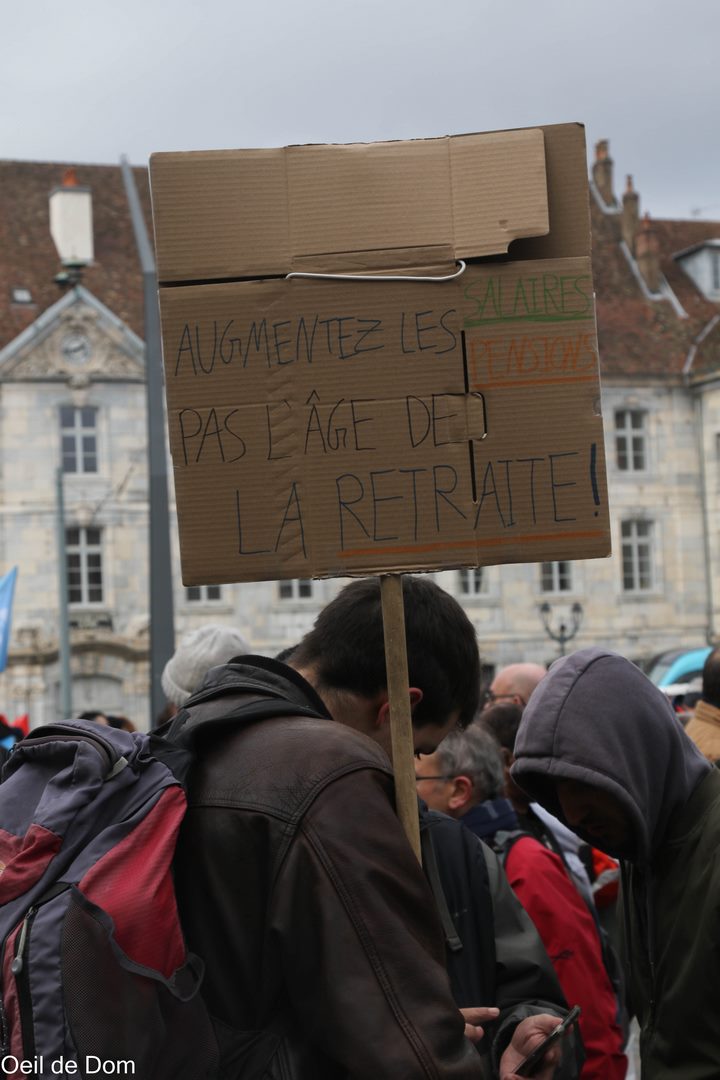 SALAIRES
AUGMENTEZ LES
PENSIONS
PAS L'ÂGE DE
LA RETRAITE!
Oeil de Dom